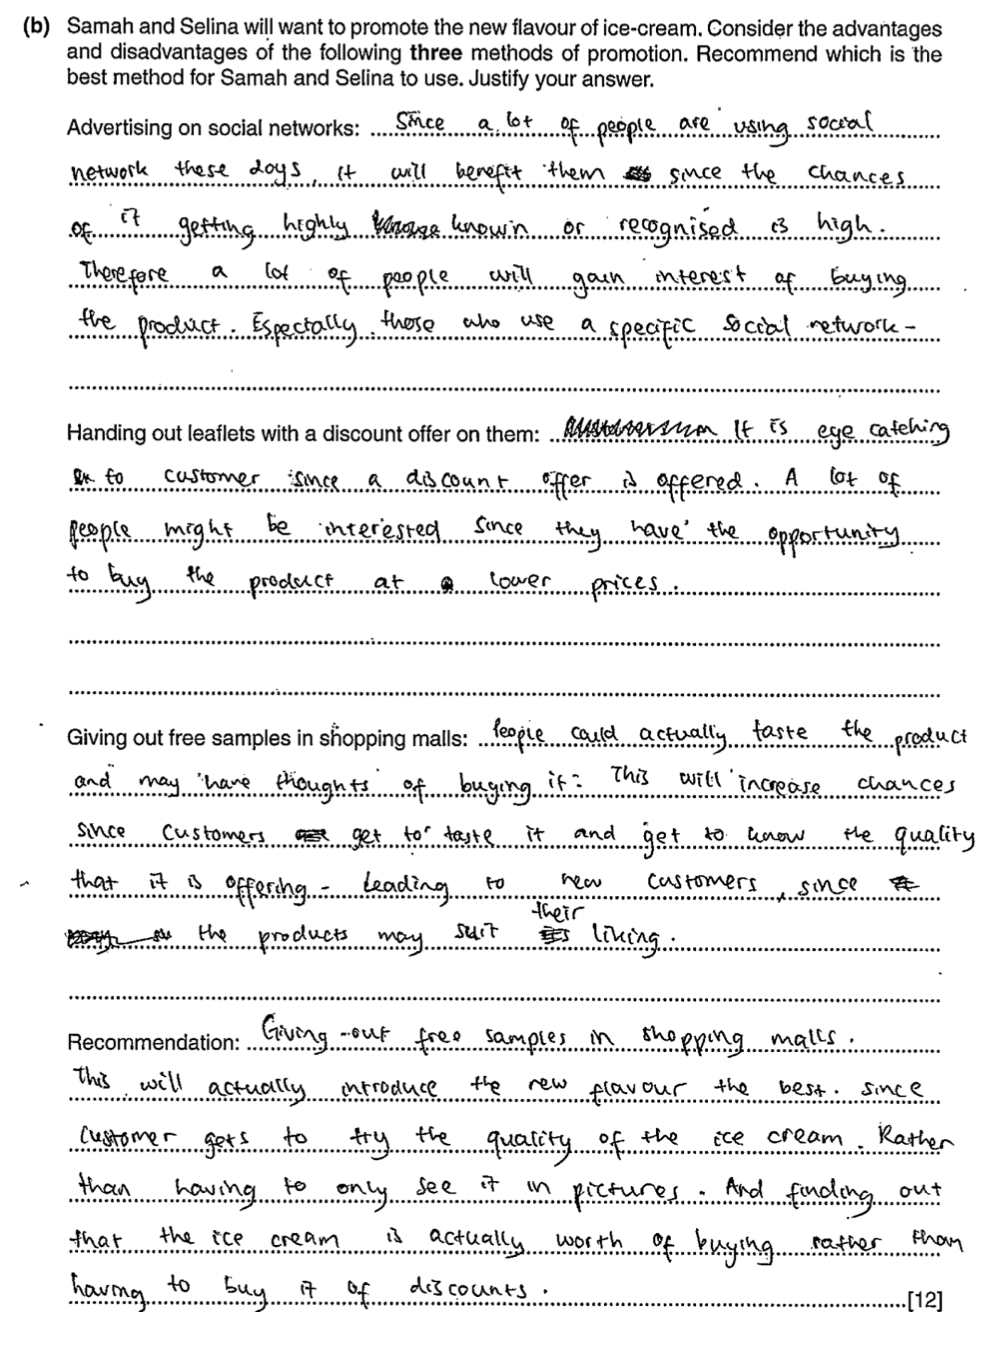 (b) Samah and Selina will want to promote the new flavour of ice-cream. Consider the advantages
and disadvantages of the following three methods of promotion. Recommend which is the
best method for Samah and Selina to use. Justify your answer.
Advertising on social networks: Since a lot of people are using social
network these days, it will benefit them since the chances
of it getting highly known or recognised is high.
Therefore a lot of people will gain interest of buying
the product. Especially those who use a specific social network-
Handing out leaflets with a discount offer on them: It is eye catching
to customer since a discount offer is offered. A lot of
people might be interested since they have the opportunity
to buy the product at lower prices.
Giving out free samples in shopping malls: People could actually taste the product
and may have thoughts of buying it. This will increase chances
since customers get to taste it and get to know the quality
that it is offering - Leading to new customers, since
the products may suit their liking.
Recommendation: Giving -out free samples in shopping malls.
This will actually introduce the new flavour the best. since
customer gets to try the quality of the ice cream. Rather
than having to only see it in pictures. And finding out
that the ice cream is actually worth of buying rather than
having to buy it of discounts.
[12]